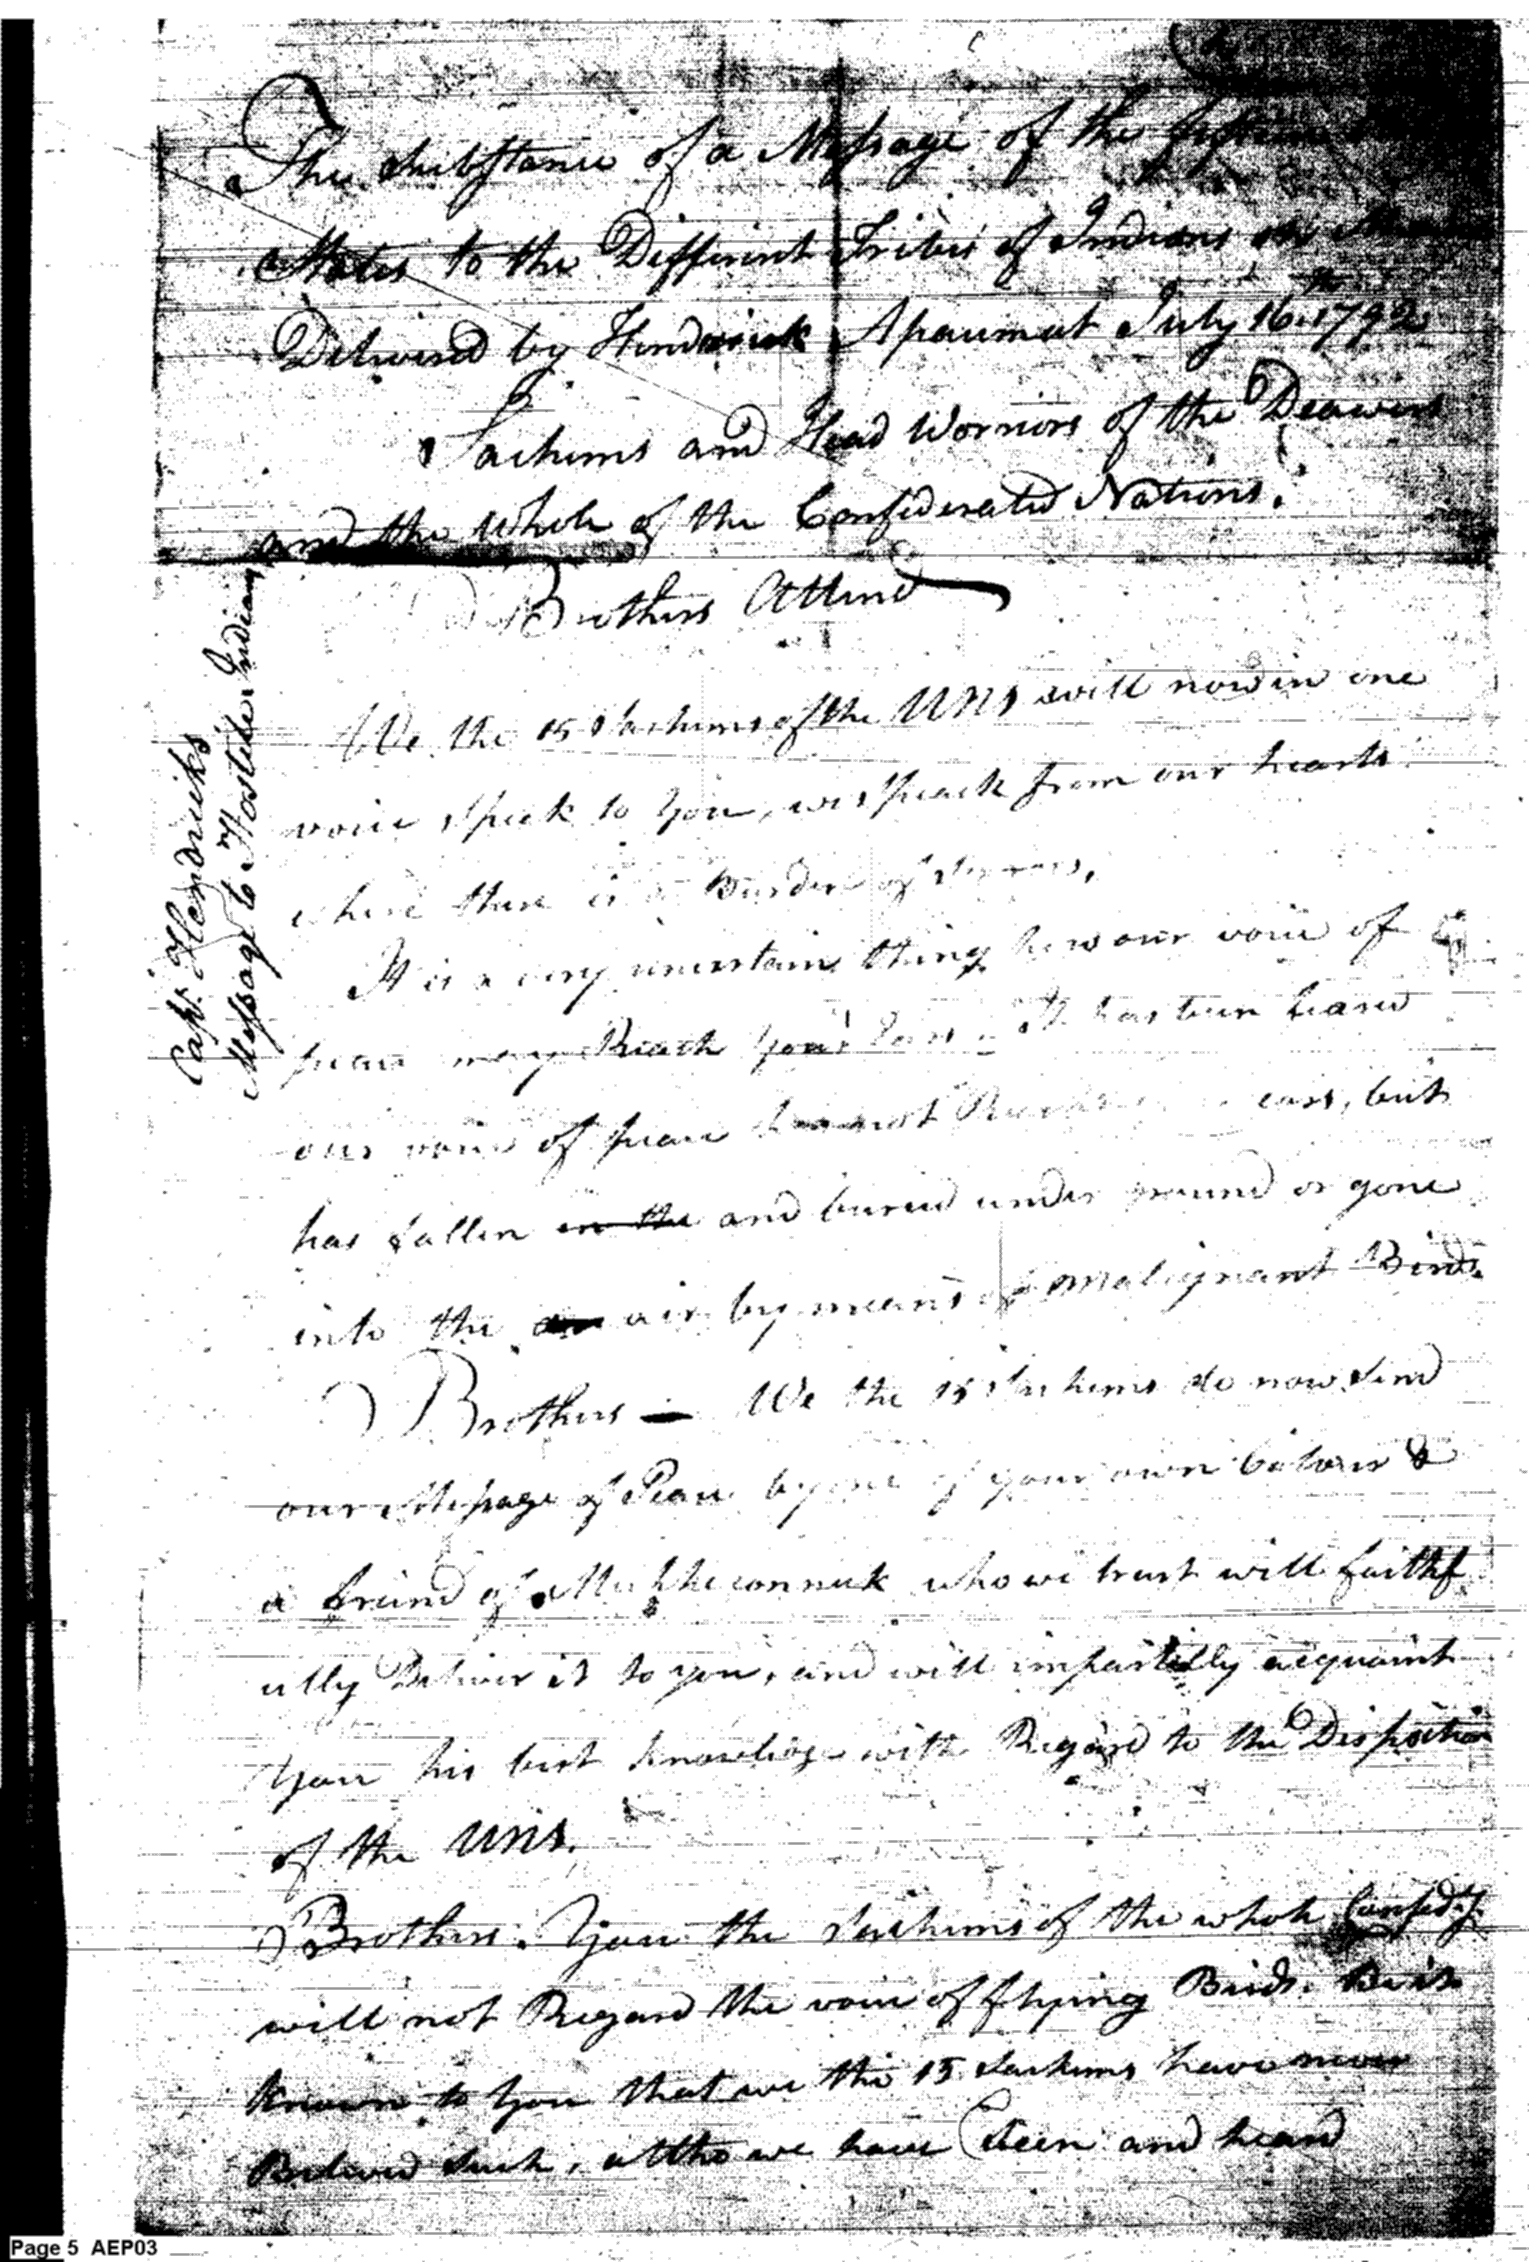 The Substance of a Message of the fifteen
States to the Different Tribes of Indians on
Delivered by Hendrick Apaumat July 16th 1792
Sachims and Head Worriors of the Delawers
and the whole of the Confiderated Nations.
Brothers Attend
We the 15 Sachims of the UNS will now in one
voice speek to you, we speack from our hearts
where there is a Burden of sorrows,
It is a very uncertain thing how our voice of
peace may Reach your Ears. It has been heard
our voice of peace has not Reached ears, but
has fallen in the and buried under ground or gone
into the air by means of Malignant Birds.
Brothers — We the 15 Sachims do now send
our Message of Peace by one of your own colour &
a freind of Muhheconnuk who we trust will faithf
ully Deliver it to you, and will impartially acquaint
you his best knowledge with Regard to the Disposition
of the UNS.
Brothers. You the Sachims of the whole Confed.y.
will not Regard the voice of flying Birds. Be it
known to you that we the 15 Sachims have never
Believed such, altho we have seen and heard
Capt. Hendricks
Message to Hostile Indians
Page 5 AEP03